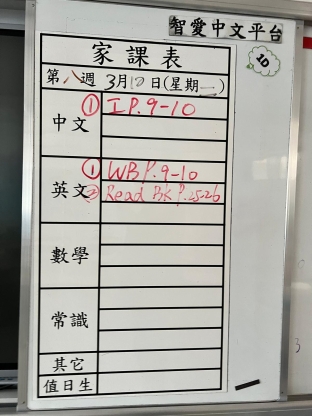 智愛中文平台
10
家課表
第八週 3月10日(星期二)
中文
① IP.9-10
英文
① WB P.9-10
② Read BK P.25-26
數學
常識
其它
值日生